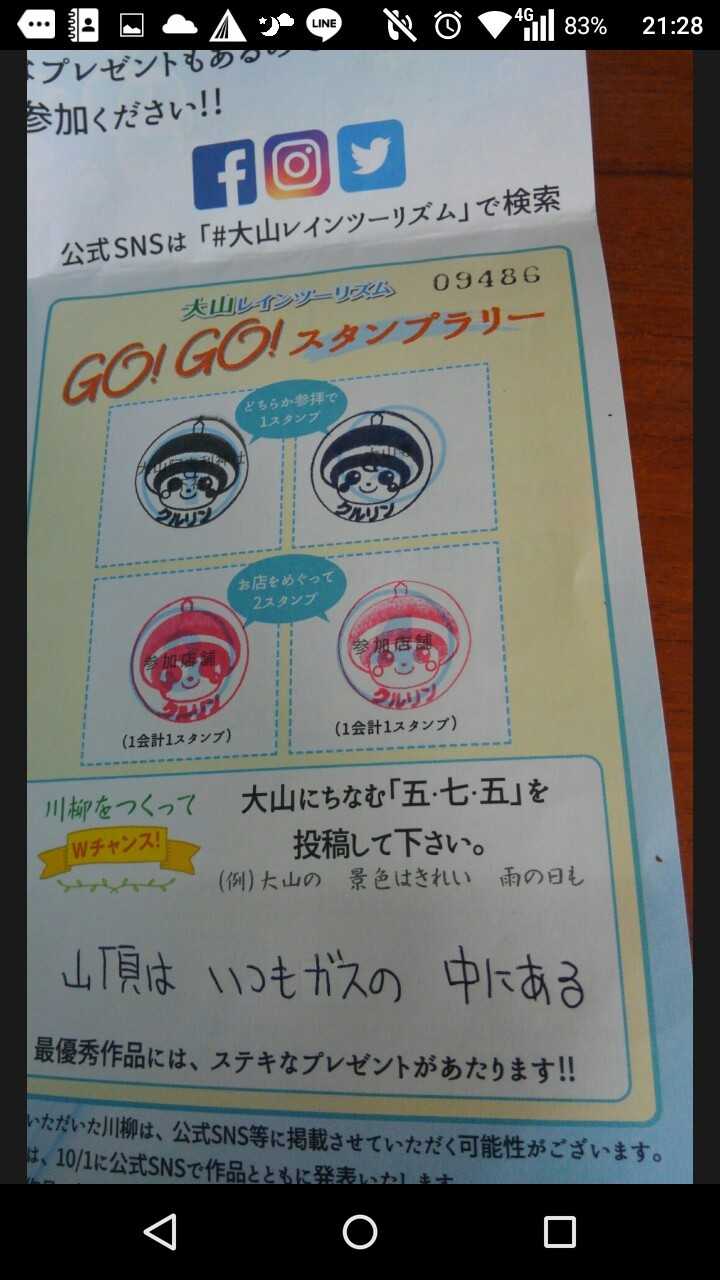 LINE 4G 83% 21:28
なプレゼントもある
参加ください!!
公式SNSは「#大山レインツーリズム」で検索
大山レインツーリズム 09486
GO! GO! スタンプラリー
どちらか参拝で
1スタンプ
クルリン クルリン
お店をめぐって
2スタンプ
参加店舗 参加店舗
クルリン クルリン
(1会計1スタンプ) (1会計1スタンプ)
川柳をつくって
Wチャンス!
大山にちなむ「五・七・五」を
投稿して下さい。
(例)大山の 景色はきれい 雨の日も
山頂は いつもガスの 中にある
最優秀作品には、ステキなプレゼントがあたります!!
いただいた川柳は、公式SNS等に掲載させていただく可能性がございます。
は、10/1に公式SNSで作品とともに発表いたします